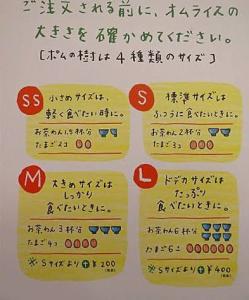 ご注文される前に、オムライスの
大きさを確かめてください。
[ポムの樹は4種類のサイズ]
SS
小さめサイズは、
軽く食べたい時に。
お茶わん1.5杯分
たまご2コ
S
標準サイズは
ふつうに食べたいときに。
お茶わん2杯分
たまご3コ
M
大きめサイズは
しっかり
食べたいときに。
お茶わん3杯分
たまご4コ
※Sサイズより+¥200
L
ドデカサイズは
たっぷり
食べたいときに。
お茶わん6杯分
たまご6コ
※Sサイズより+¥400